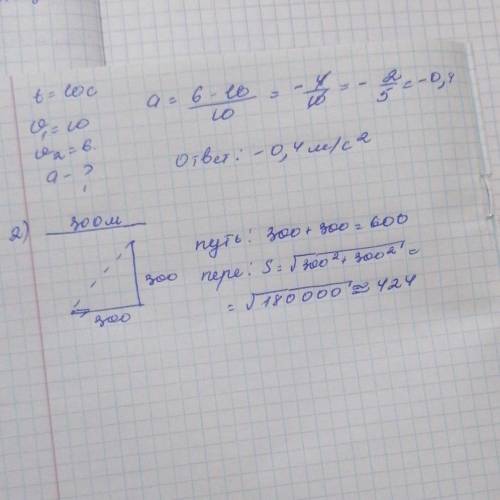 t = 10с
υ₁ = 10
υ₂ = 6
a - ?
a = (6 - 10)/10 = -4/10 = -2/5 = -0,4
Ответ: -0,4 м/с²
2)
300м
300
300
путь: 300 + 300 = 600
пере: S = √300² + 300² =
= √180000 ≈ 424